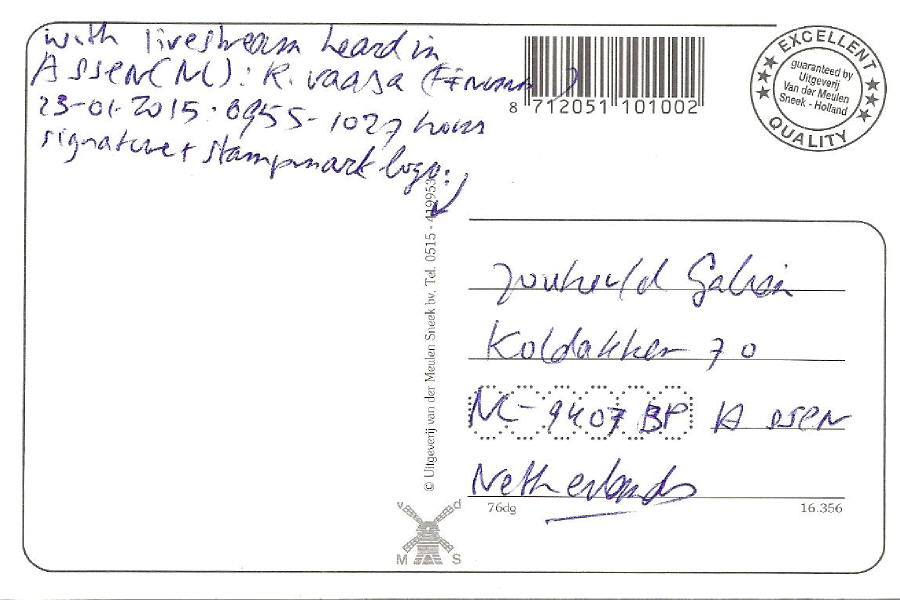 with livestream heard in
ASSEN(NL): R. vaasa (Finland)
23-01-2015: 0955-1027 hours
signature + stampmark logo:
8 712051 101002
EXCELLENT
guaranteed by
Uitgeverij
Van der Meulen
Sneek - Holland
QUALITY
© Uitgeverij van der Meulen Sneek bv. Tel. 0515 - 419953
Koldakker 70
NL-9407 BP ASSEN
Netherlands
76dg
16.356
M S